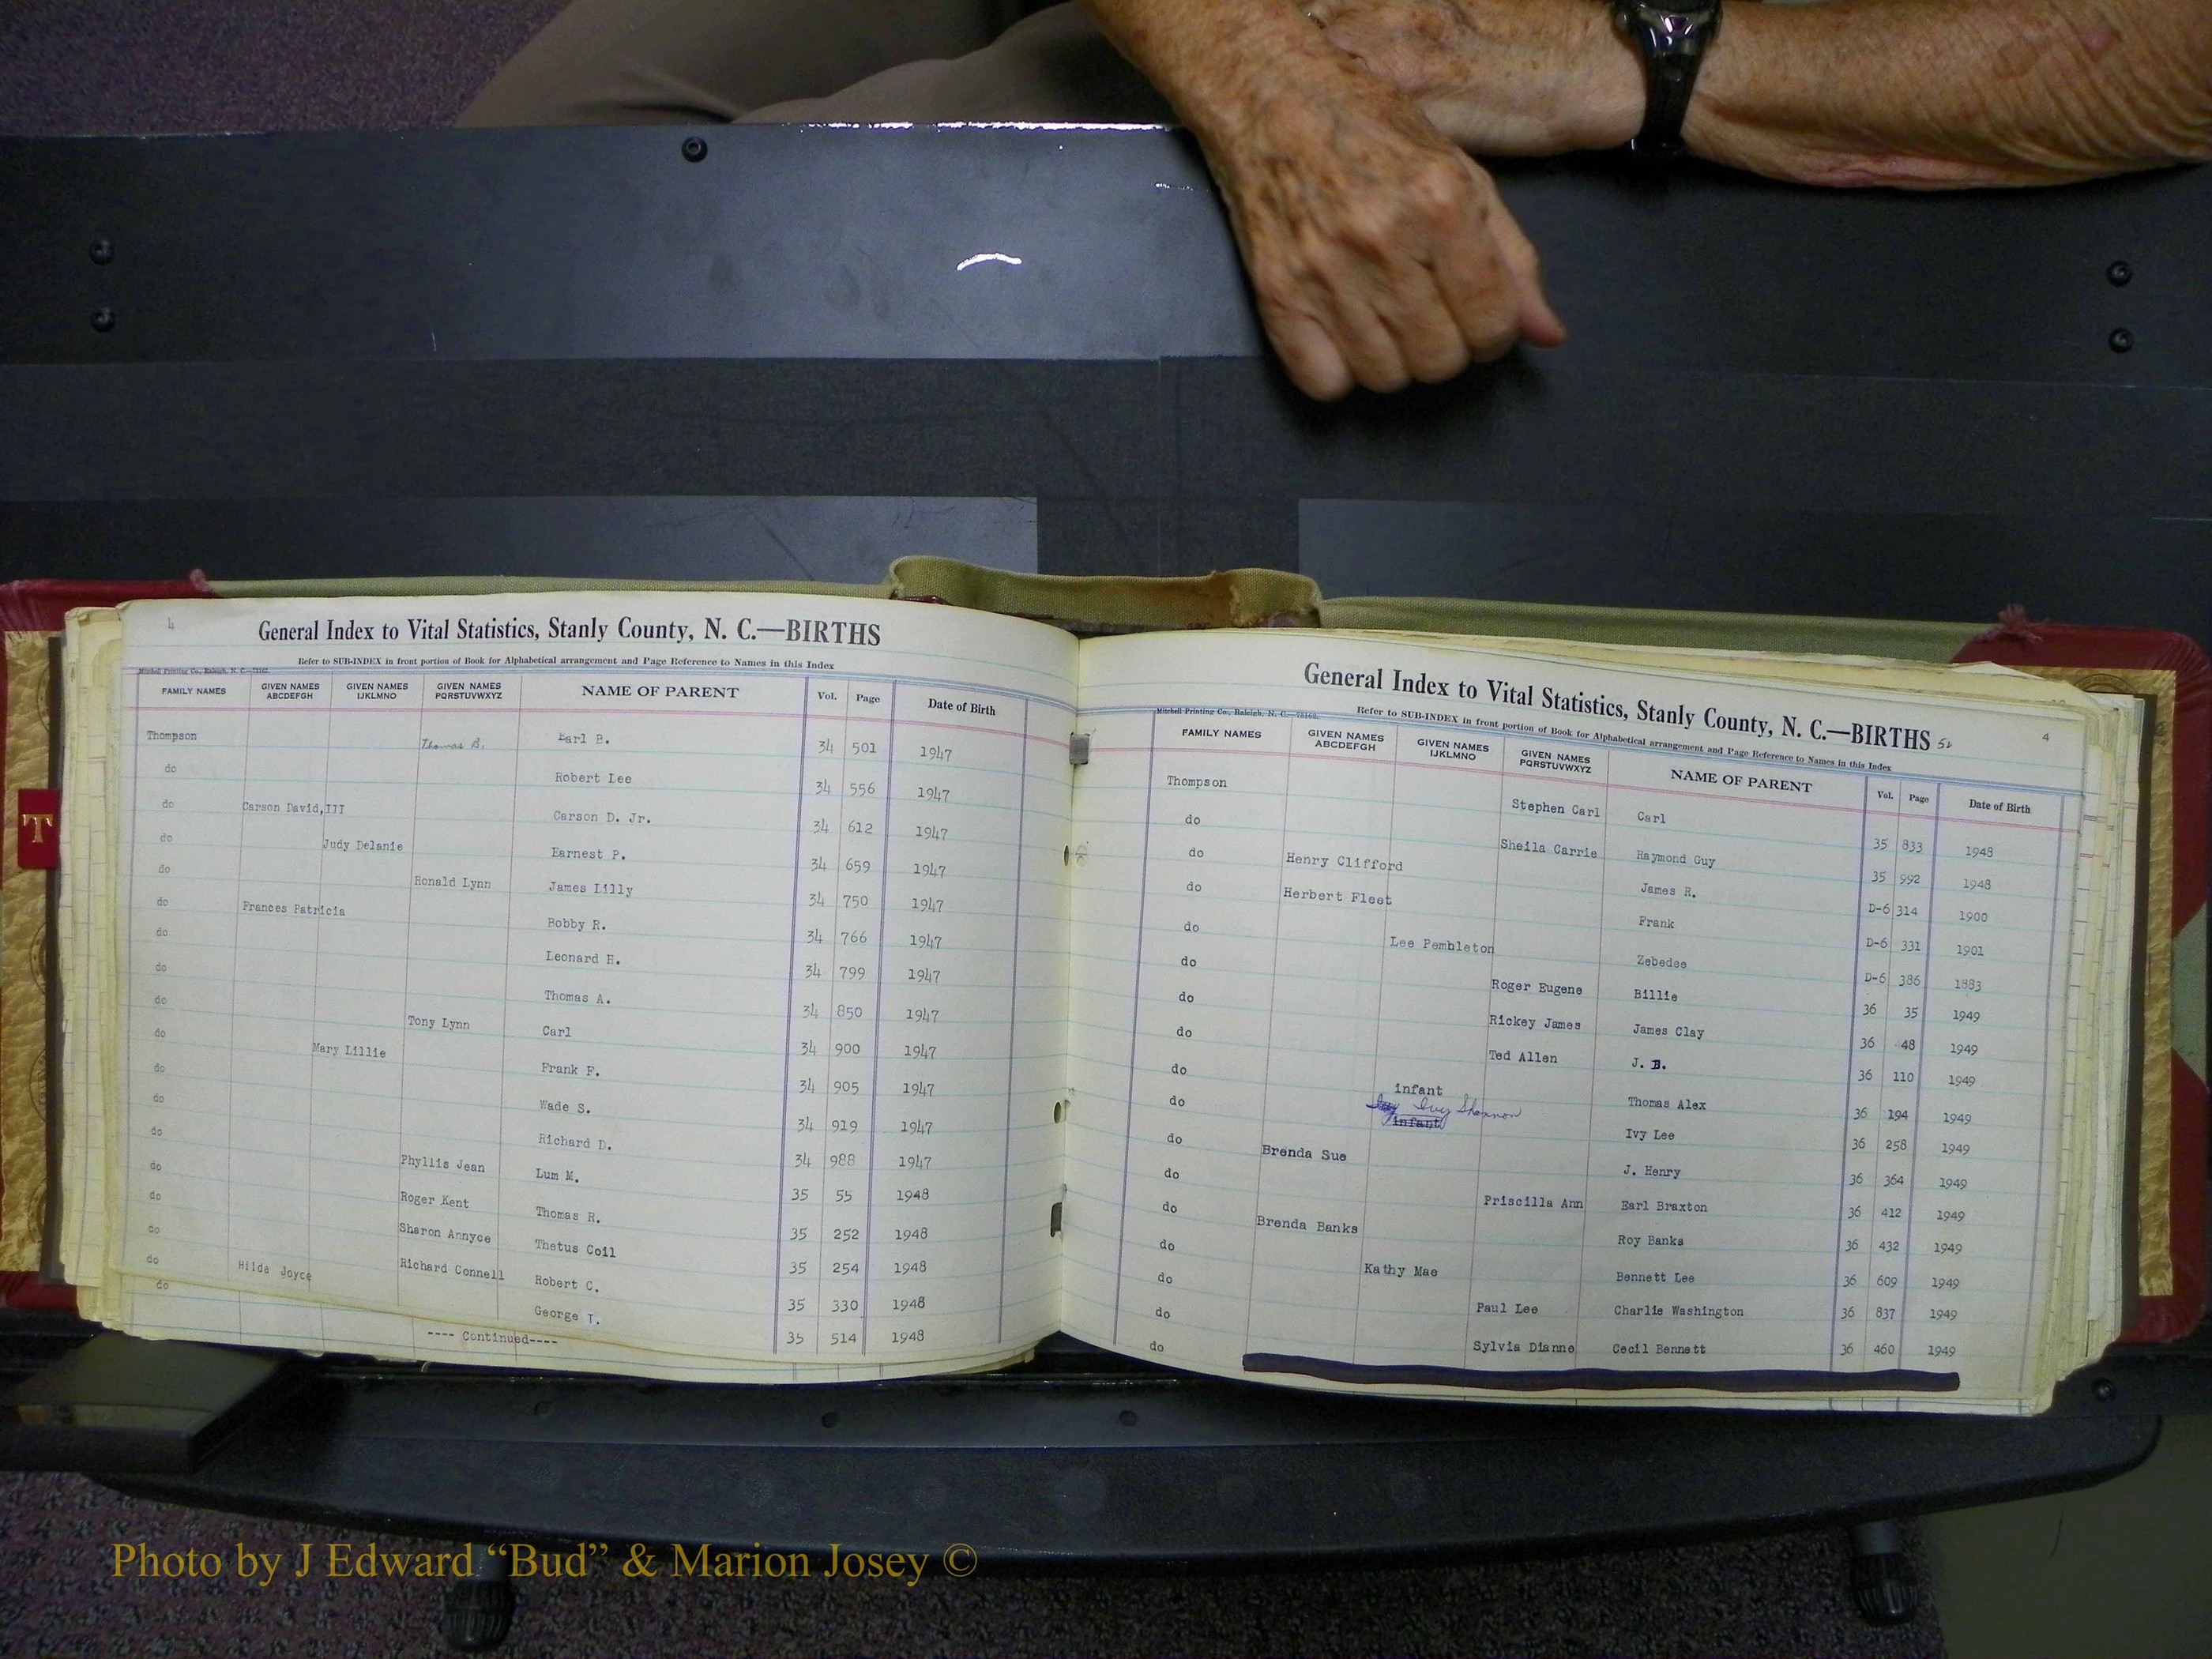 4
General Index to Vital Statistics, Stanly County, N. C.—BIRTHS
Refer to SUB-INDEX in front portion of Book for Alphabetical arrangement and Page Reference to Names in this Index
Mitchell Printing Co., Raleigh, N. C.—73162.
FAMILY NAMES GIVEN NAMES ABCDEFGH GIVEN NAMES IJKLMNO GIVEN NAMES PQRSTUVWXYZ NAME OF PARENT Vol. Page Date of Birth
Thompson Thomas B. Earl B. 34 501 1947
do Robert Lee 34 556 1947
do Carson David,III Carson D. Jr. 34 612 1947
do Judy Delanie Earnest P. 34 659 1947
do Ronald Lynn James Lilly 34 750 1947
do Frances Patricia Bobby R. 34 766 1947
do Leonard H. 34 799 1947
do Thomas A. 34 850 1947
do Tony Lynn Carl 34 900 1947
do Mary Lillie Frank F. 34 905 1947
do Wade S. 34 919 1947
do Richard D. 34 988 1947
do Phyllis Jean Lum M. 35 55 1948
do Roger Kent Thomas R. 35 252 1948
do Sharon Annyce Thetus Coil 35 254 1948
do Richard Connell Robert C. 35 330 1948
do Hilda Joyce George T. 35 514 1948
do
---- Continued----
T
General Index to Vital Statistics, Stanly County, N. C.—BIRTHS 52
4
Refer to SUB-INDEX in front portion of Book for Alphabetical arrangement and Page Reference to Names in this Index
Mitchell Printing Co., Raleigh, N. C.—73162.
FAMILY NAMES GIVEN NAMES ABCDEFGH GIVEN NAMES IJKLMNO GIVEN NAMES PQRSTUVWXYZ NAME OF PARENT Vol. Page Date of Birth
Thompson Stephen Carl Carl 35 833 1948
do Sheila Carrie Raymond Guy 35 992 1948
do Henry Clifford James R. D-6 314 1900
do Herbert Fleet Frank D-6 331 1901
do Lee Pembleton Zebedee D-6 386 1883
do Roger Eugene Billie 36 35 1949
do Rickey James James Clay 36 48 1949
do Ted Allen J. B. 36 110 1949
do infant Thomas Alex 36 194 1949
do Ivy Shannon infant Ivy Lee 36 258 1949
do Brenda Sue J. Henry 36 364 1949
do Priscilla Ann Earl Braxton 36 412 1949
do Brenda Banks Roy Banks 36 432 1949
do Kathy Mae Bennett Lee 36 609 1949
do Paul Lee Charlie Washington 36 837 1949
do Sylvia Dianne Cecil Bennett 36 460 1949
do
Photo by J Edward “Bud” & Marion Josey ©